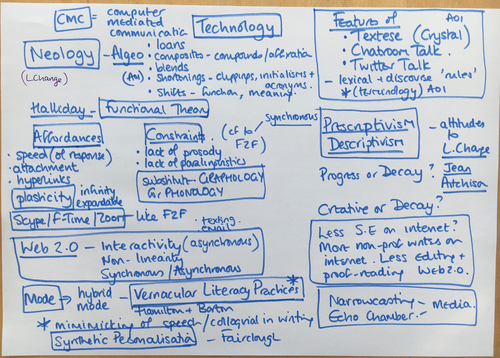 CMC = computer
mediated
communicatio
Technology
Neology - Algeo
(LChange)
(AO1)
• loans
• composites - compounds/affixation
• blends
• Shortenings - clippings, initialisms +
acronyms.
• Shifts - function, meaning.
Features of AO1
• Textese (Crystal)
• Chatroom Talk
• Twitter Talk
- lexical + discourse 'rules'
* (terminology) AO1
Halliday - Functional Theory
Affordances
• speed (of response)
• attachment
• hyperlinks
plasticity infinitely
expandable
Constraints (cf to
F2F)
synchronous
• lack of prosody
• lack of paralinguistics
substitute - GRAPHOLOGY
Gr PHONOLOGY
Prescriptivism
Descriptivism
- attitudes
to
L.Change
Progress or Decay?
Jean
Aitchison
Creative or Decay?
Skype/F-Time/Zoom - like F2F
• texting
email
Web 2.0 - Interactivity (asynchronous)
Non-linearity
Synchronous/Asynchronous
Less S.E on internet?
More non-prof writers on
internet. Less Editing +
proof-reading Web 2.0.
Mode → hybrid
mode
- Vernacular Literacy Practices *
Hamilton + Barton
* mimimicking of speech/colloquial in writing
Synthetic Personalisatio - Fairclough
Narrowcasting - Media.
Echo Chamber -